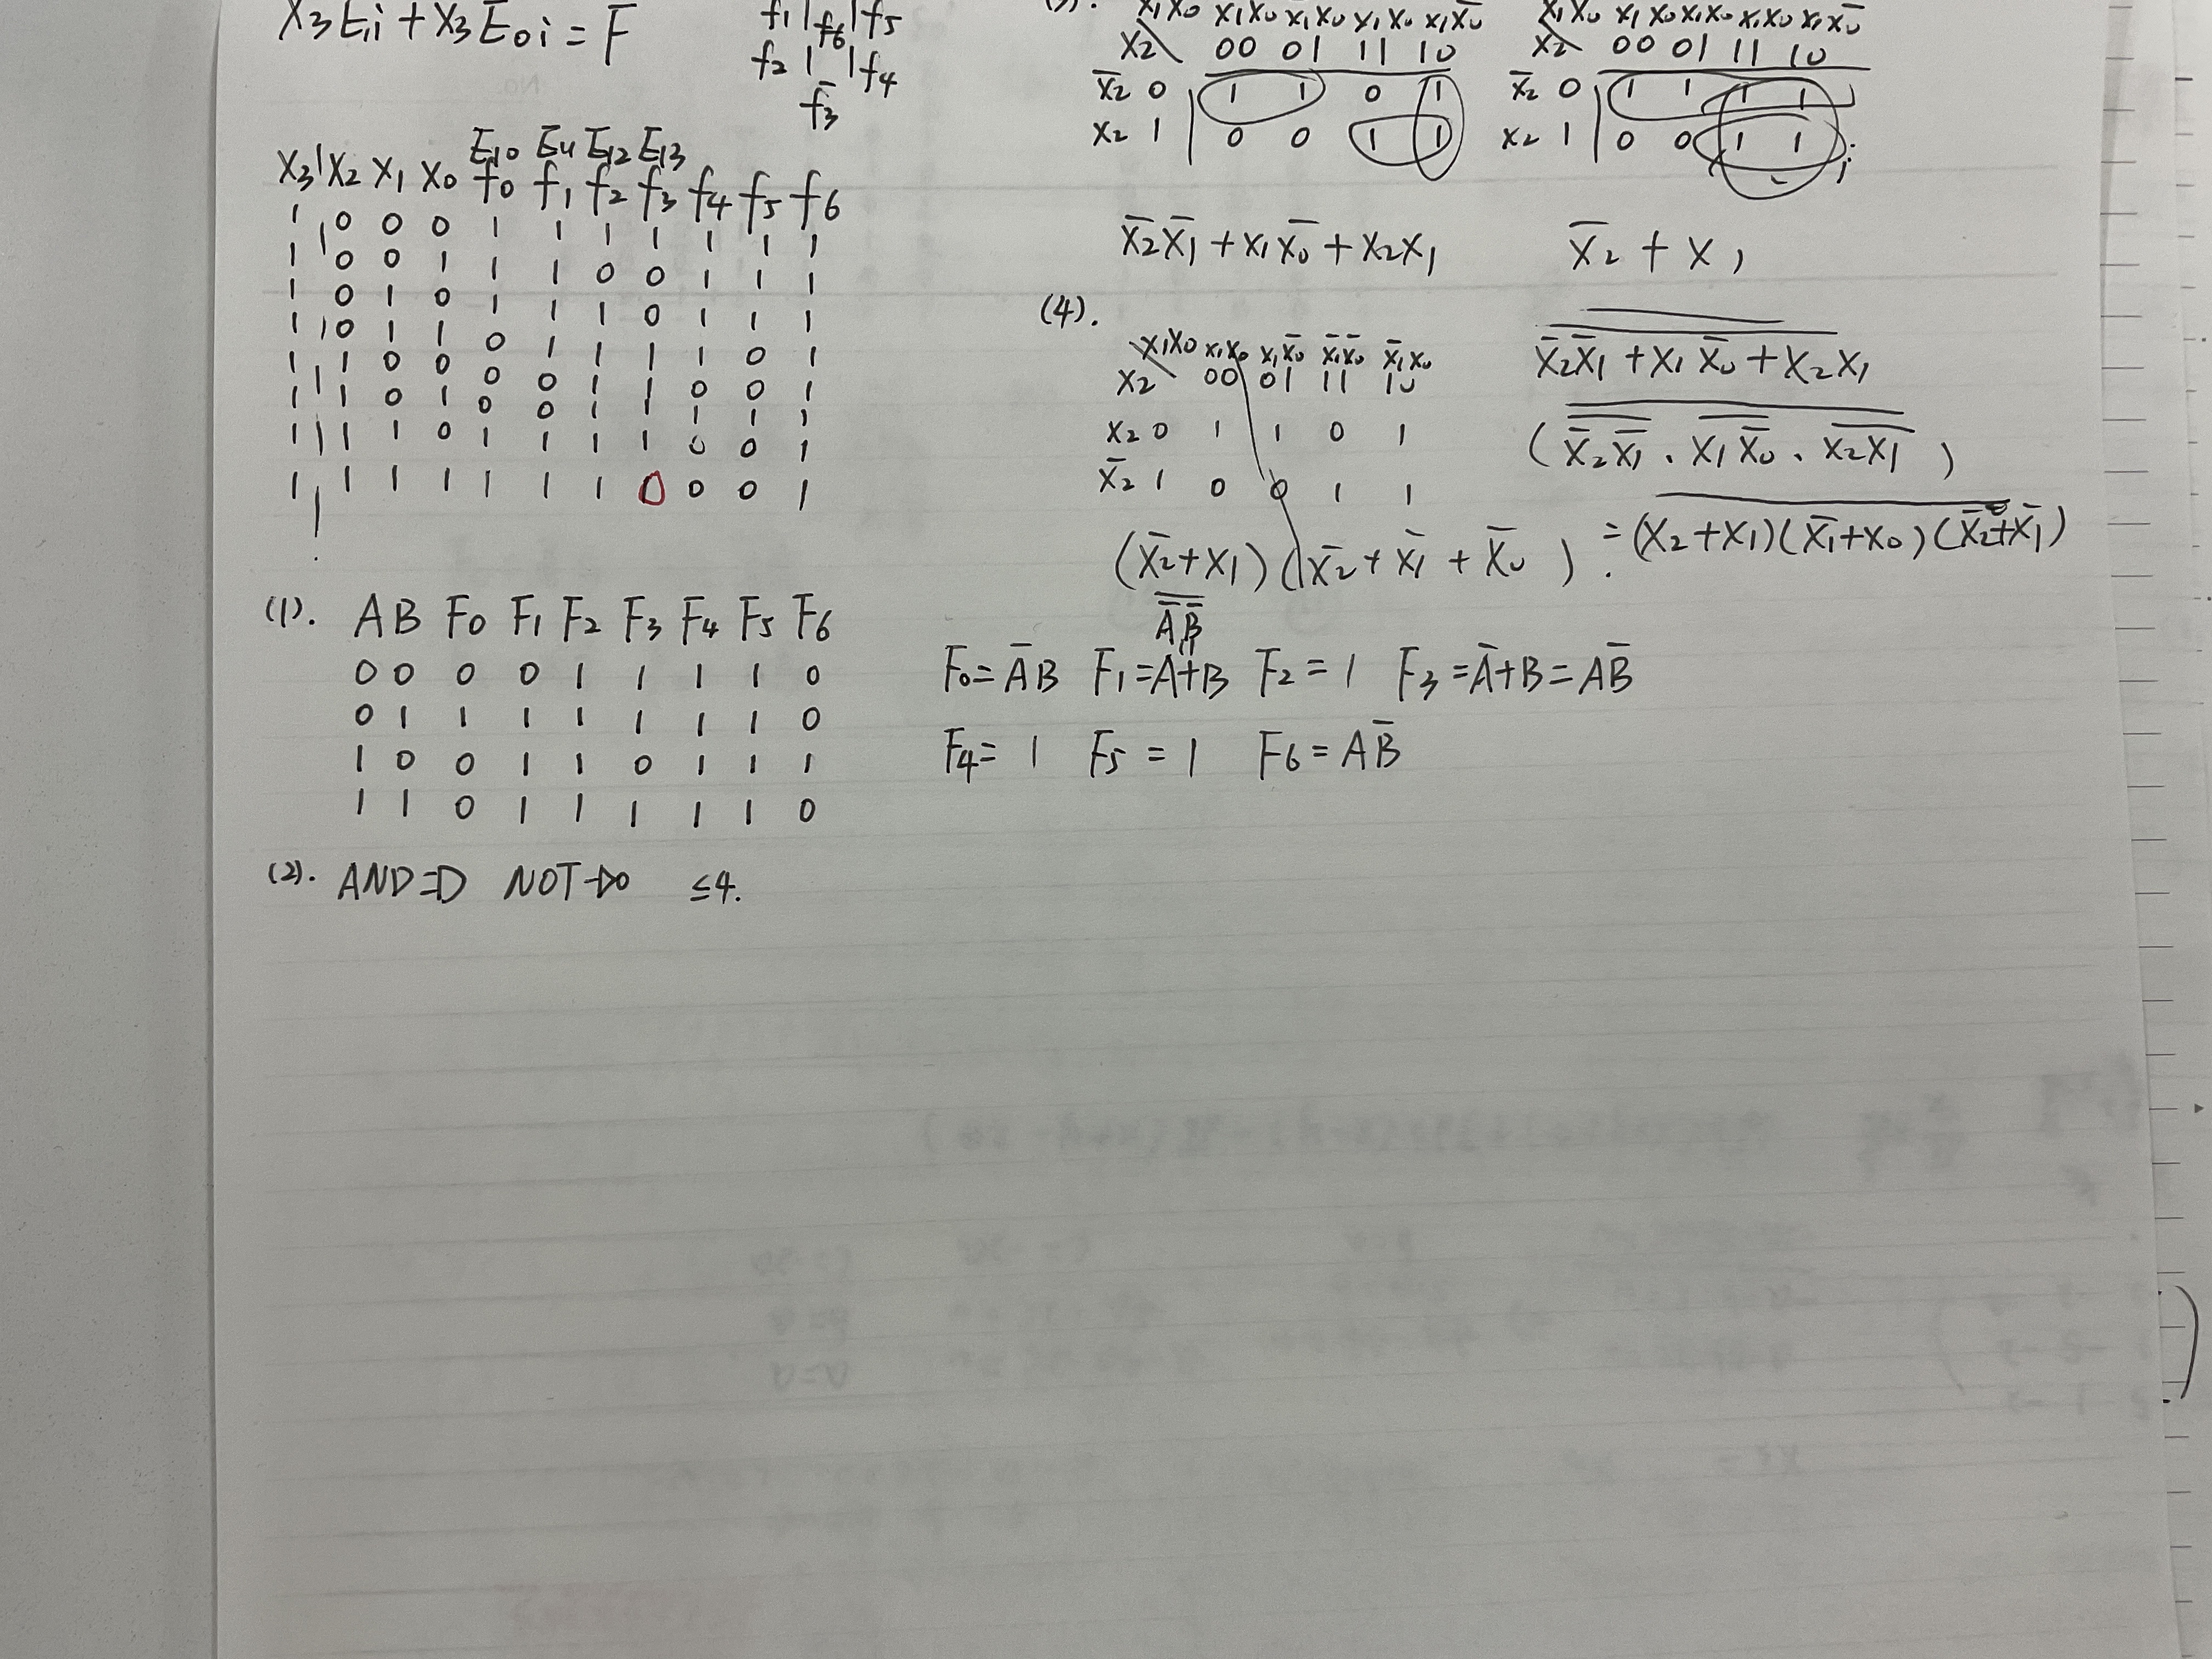 X3E1i + X3E0i = F
f1 | f6 | f5
f2 | | f4
f3
E10 E11 E12 E13
X3 X2 X1 X0 f0 f1 f2 f3 f4 f5 f6
1 0 0 0 1 1 1 1 1 1 1
1 0 0 1 1 1 0 0 1 1 1
1 0 1 0 1 1 1 0 1 1 1
1 0 1 1 0 1 1 1 1 0 1
1 1 0 0 0 0 1 1 0 0 1
1 1 0 1 0 0 1 1 1 1 1
1 1 1 0 1 1 1 1 0 0 1
1 1 1 1 1 1 1 0 0 0 1
(1). A B F0 F1 F2 F3 F4 F5 F6
0 0 0 0 1 1 1 1 0
0 1 1 1 1 1 1 1 0
1 0 0 1 1 0 1 1 1
1 1 0 1 1 1 1 1 0
(2). AND NOT ≤4.
X2 00 01 11 10
X̄2 0 1 1 0 1
X2 1 0 0 1 1
X̄2X̄1 + X1X̄0 + X2X1
X2 00 01 11 10
X̄2 0 1 1 1 1
X2 1 0 0 1 1
X̄2 + X1
(4).
X1X0 X1X0 X1X̄0 X̄1X̄0 X̄1X0
X2 00 01 11 10
X2 0 1 1 0 1
X̄2 1 0 0 1 1
(X̄2+X1)(X̄2+X̄1+X̄0)
X̄2X̄1 + X1X̄0 + X2X1
(X̄2X̄1 · X1X̄0 · X2X1)
=(X2+X1)(X̄1+X0)(X̄2+X̄1)
ĀB̄
F0=ĀB F1=A+B F2=1 F3=Ā+B=AB̄
F4=1 F5=1 F6=AB̄